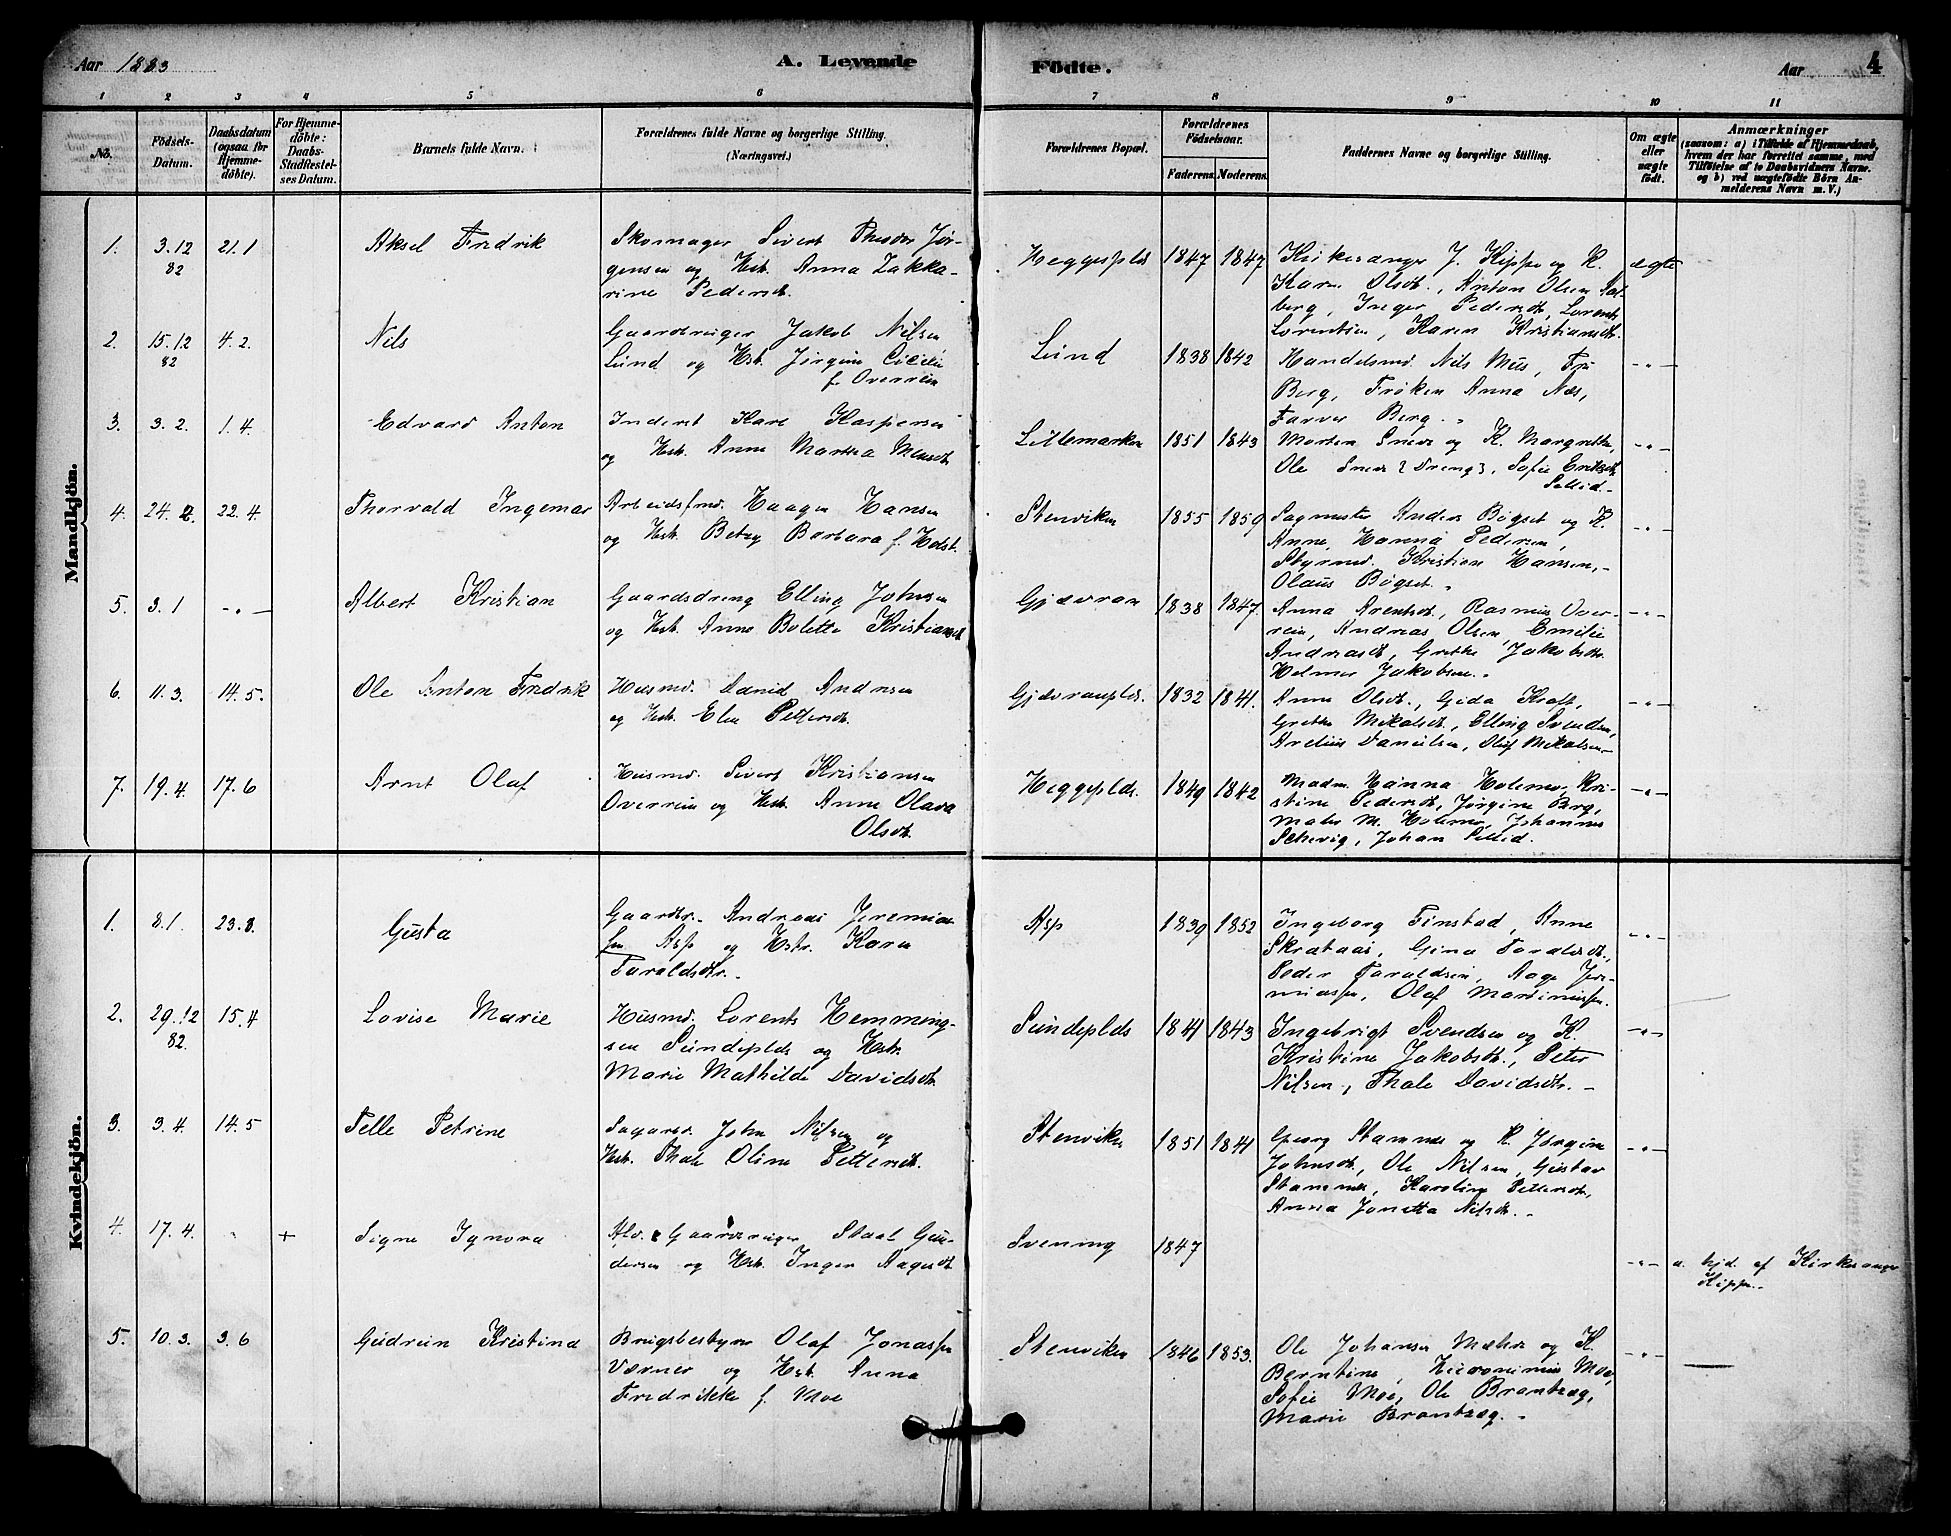 Aar 1883
A. Levende Födte.
Aar 4
1 2 3 4 5 6 7 8 9 10 11
No.
Födsels-Datum.
Daabsdatum (ogsaa for Hjemme-döbte).
For Hjemme-döbte: Daabs-Stadfestel-ses Datum.
Barnets fulde Navn.
Forældrenes fulde Navne og borgerlige Stilling.
(Næringsvei.)
Forældrenes Bopæl.
Forældrenes Födselsaar.
Faderens. Moderens.
Faddernes Navne og borgerlige Stilling.
Om ægte eller uægte födt.
Anmærkninger
(saasom: a) i Tilfælde af Hjemmedaab, hvem der har forrettet samme, med Tilföielse af to Daabsvidners Navne. og b) ved uægtefödte Börn Anmelderens Navn m. V.)
Mandkjön.
1. 3.12 82 21.1 Aksel Fredrik
Skomager Sivert Theodor Jør-
gensen og Hst. Anna Zakka-
rine Pedersdt.
Heggesplds 1847 1847
Kirkesanger J. Hippe og K.
Karen Olsdt., Anton Olsen Sæl-
berg, Inger Pedersdt, Lorents
Lorentsen, Karen Kristiansdt.
ægte
2. 15.12 82 4.2. Nils
Gaardbruger Jakob Nilsen
Lund og Hst. Jørgine Cicilie
f. Overrein
Lund 1838 1842
Handelsmd. Nils Mus, Fru
Berg, Frøken Anna Næs,
Farver Berg. „
-„-
3. 3.2. 1.4. Edvard Anton
Inderst Karl Kaspersen
og Hst. Anne Martha
Lillemarken 1851 1843
Morten Sneve og K. Margrethe
Ole Sneve (Dreng), Sofie Eriksdt.
Sellid.
-„-
4. 24.2. 22.4. Thorvald Ingemar
Arbeidsmd. Haagen Hansen
og Hst. Betzy Barbara f. Holst.
Stenviken 1855 1859
Sagmester Anders Bøgset og K.
Anne, Hanna Pedersen,
Styrmd. Kristian Hansen,
Olaus Bøgset. „
-„-
5. 3.1 -„- Albert Kristian
Gaardsdreng Elling Johnsen
og Hst. Anne Bolette Kristiansdt.
Gjævran 1838 1847.
Anna Arentsdt., Rasmus Over-
rein, Andreas Olsen, Emilie
Andreasdt, Grethe Jakobsdt.
Helmer Jakobsen.
-„-
6. 11.3. 14.5. Ole Anton Fredrik
Husmd. Daniel Andresen
og Hst. Elen Pettersdt.
Gjævranplds. 1832 1841.
Anne Olsdt., Gida Kraft,
Grethe Mikalsdt., Elling Svendsen,
Arelius Danielsen, Oluf Mikalsen
-„-
7. 19.4. 17.6 Arnt Olaf
Husmd. Sivert Kristiansen
Overrein og Hst. Anne Olava
Olsdt.
Heggeplds. 1849 1842
Madm. Hanna Holemo, Kri-
stine Pedersdt, Jørgine Berg,
M. Holemo, Johannes
Schevig, Johan Sellid.
-„-
Kvindekjön.
1. 8.1. 23.3. Gusta
Gaardbr. Andreas Jeremias-
sen Asp og Hstr. Karen
Taraldsdtr.
Asp 1839 1852
Ingeborg Finstad, Anne
Skrataas, Gina Taraldsdt.,
Peder Taraldsen, Aage Jere-
miassen, Olaf Martinussen.
-„-
2. 29.12 82. 15.4 Lovise Marie
Husmd. Lorents Hemming-
sen Sundeplds og Hstr.
Marie Mathilde Davidsdt.
Sundeplds 1841 1843
Ingebrigt Svendsen og K.
Kristine Jakobsdt., Peter
Nilsen, Thale Davidsdtr.
-„-
3. 3.4. 14.5 Telle Petrine
Sagarbr. John Nilsen og
Hst. Thale Oline Pettersdt.
Stenviken 1851 1841
Georg Stamnes og K. Jørgine
Johnsdt., Ole Nilsen, Gustav
Stamnes, Karoline Pettersdt,
Anna Jonetta Nilsdt.
-„-
4. 17.4. + Signe Ignora
Gaardbruger Staal Gun-
dersen og Hst. Inger Aagesdt
Svening 1847
-„-
a. hjd. af Kirkesanger
Hippe.
5. 10.3. 3.6 Gudrun Kristine
Brugsbestyrer Olaf Jonassen
Værnes og Hst. Anna
Fredrikke f. Moe
Stenviken 1846 1853.
Ole Johansen Mæhre og K.
Berntine, Hieronimus Moe,
Sofie Moe, Ole Brantzæg,
Marie Brantzæg.
-„-